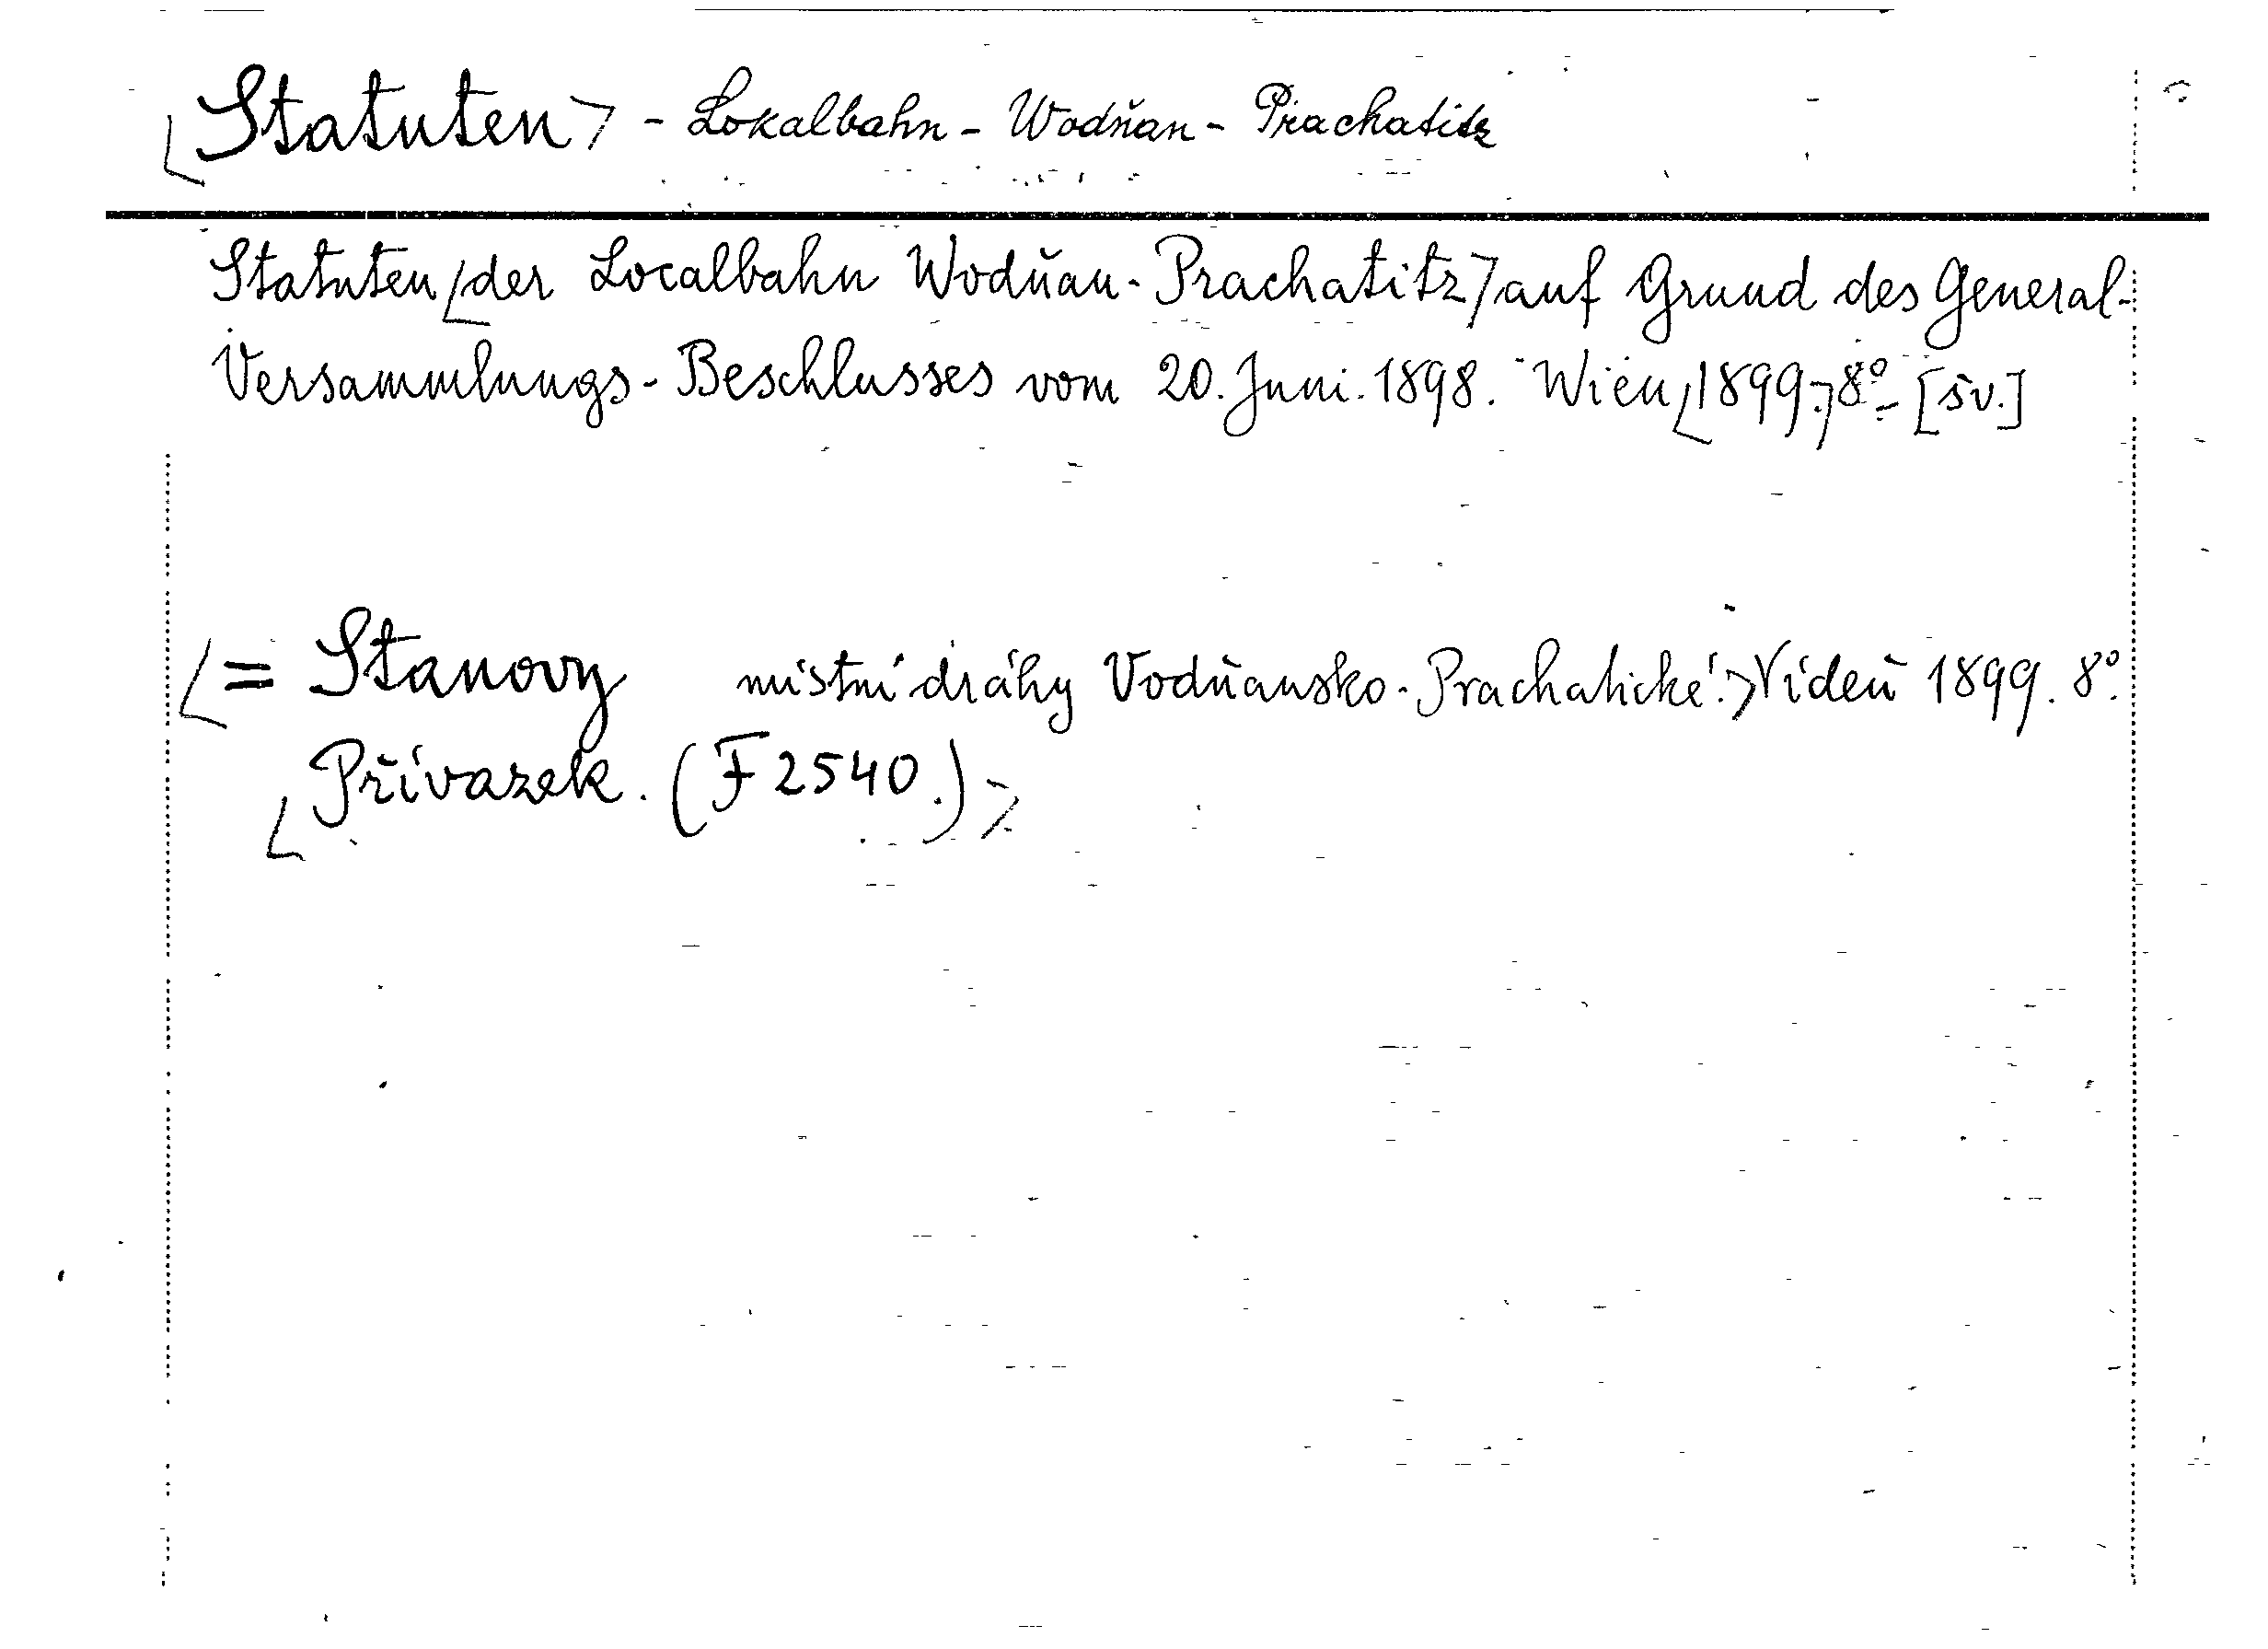 Statuten - Lokalbahn - Wodňan - Prachatitz
Statuten der Localbahn Wodňan - Prachatitz auf Grund des General-
Versammlungs - Beschlusses vom 20. Juni. 1898. Wien 1899. 8° - [sv.]
= Stanovy místní dráhy Vodňansko - Prachatické. Vídeň 1899. 8°.
Přívazek. (F 2540.)